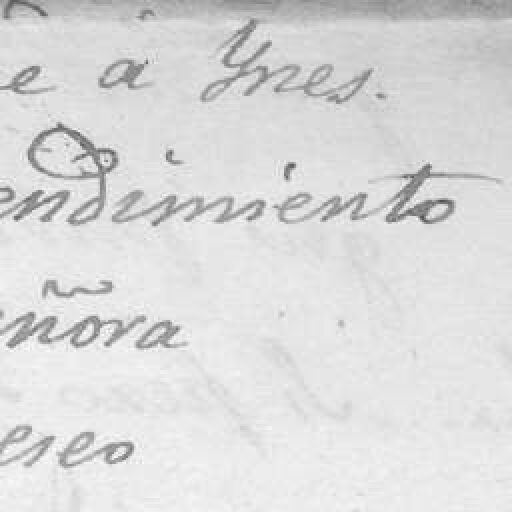 e á Ynes.
endimiento
eñora
eseo